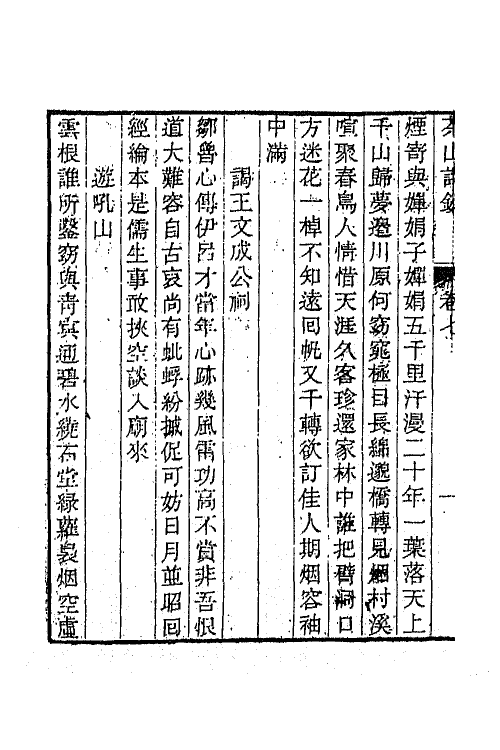 茶山詩鈔 卷七
煙寄與嬋娟子嬋娟五千里汗漫二十年一葉落天上
千山歸夢邊川原何窈窕極目長綿邈橋轉見烟村溪
喧聚春鳥人情惜天涯久客珍還家林中誰把臂洞口
方迷花一棹不知遠回帆又千轉欲訂佳人期烟容袖
中滿
謁王文成公祠
鄒魯心傳伊呂才當年心跡幾風雷功高不賞非吾恨
道大難容自古哀尚有蚍蜉紛撼促可妨日月並昭回
經綸本是儒生事敢挾空談入廟來
遊吼山
雲根誰所鑿窈與靑冥通碧水繞石堂綠蘿裊烟空虛